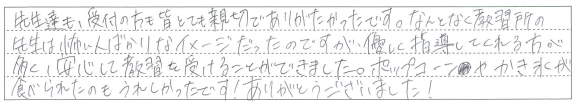 先生達も、受付の方も皆とても親切でありがたかったです。なんとなく教習所の
先生は怖い人ばかりなイメージだったのですが、優しく指導してくれる方が
多く、安心して教習を受けることができました。ポップコーンやかき氷が
食べられたのもうれしかったです!ありがとうございました!